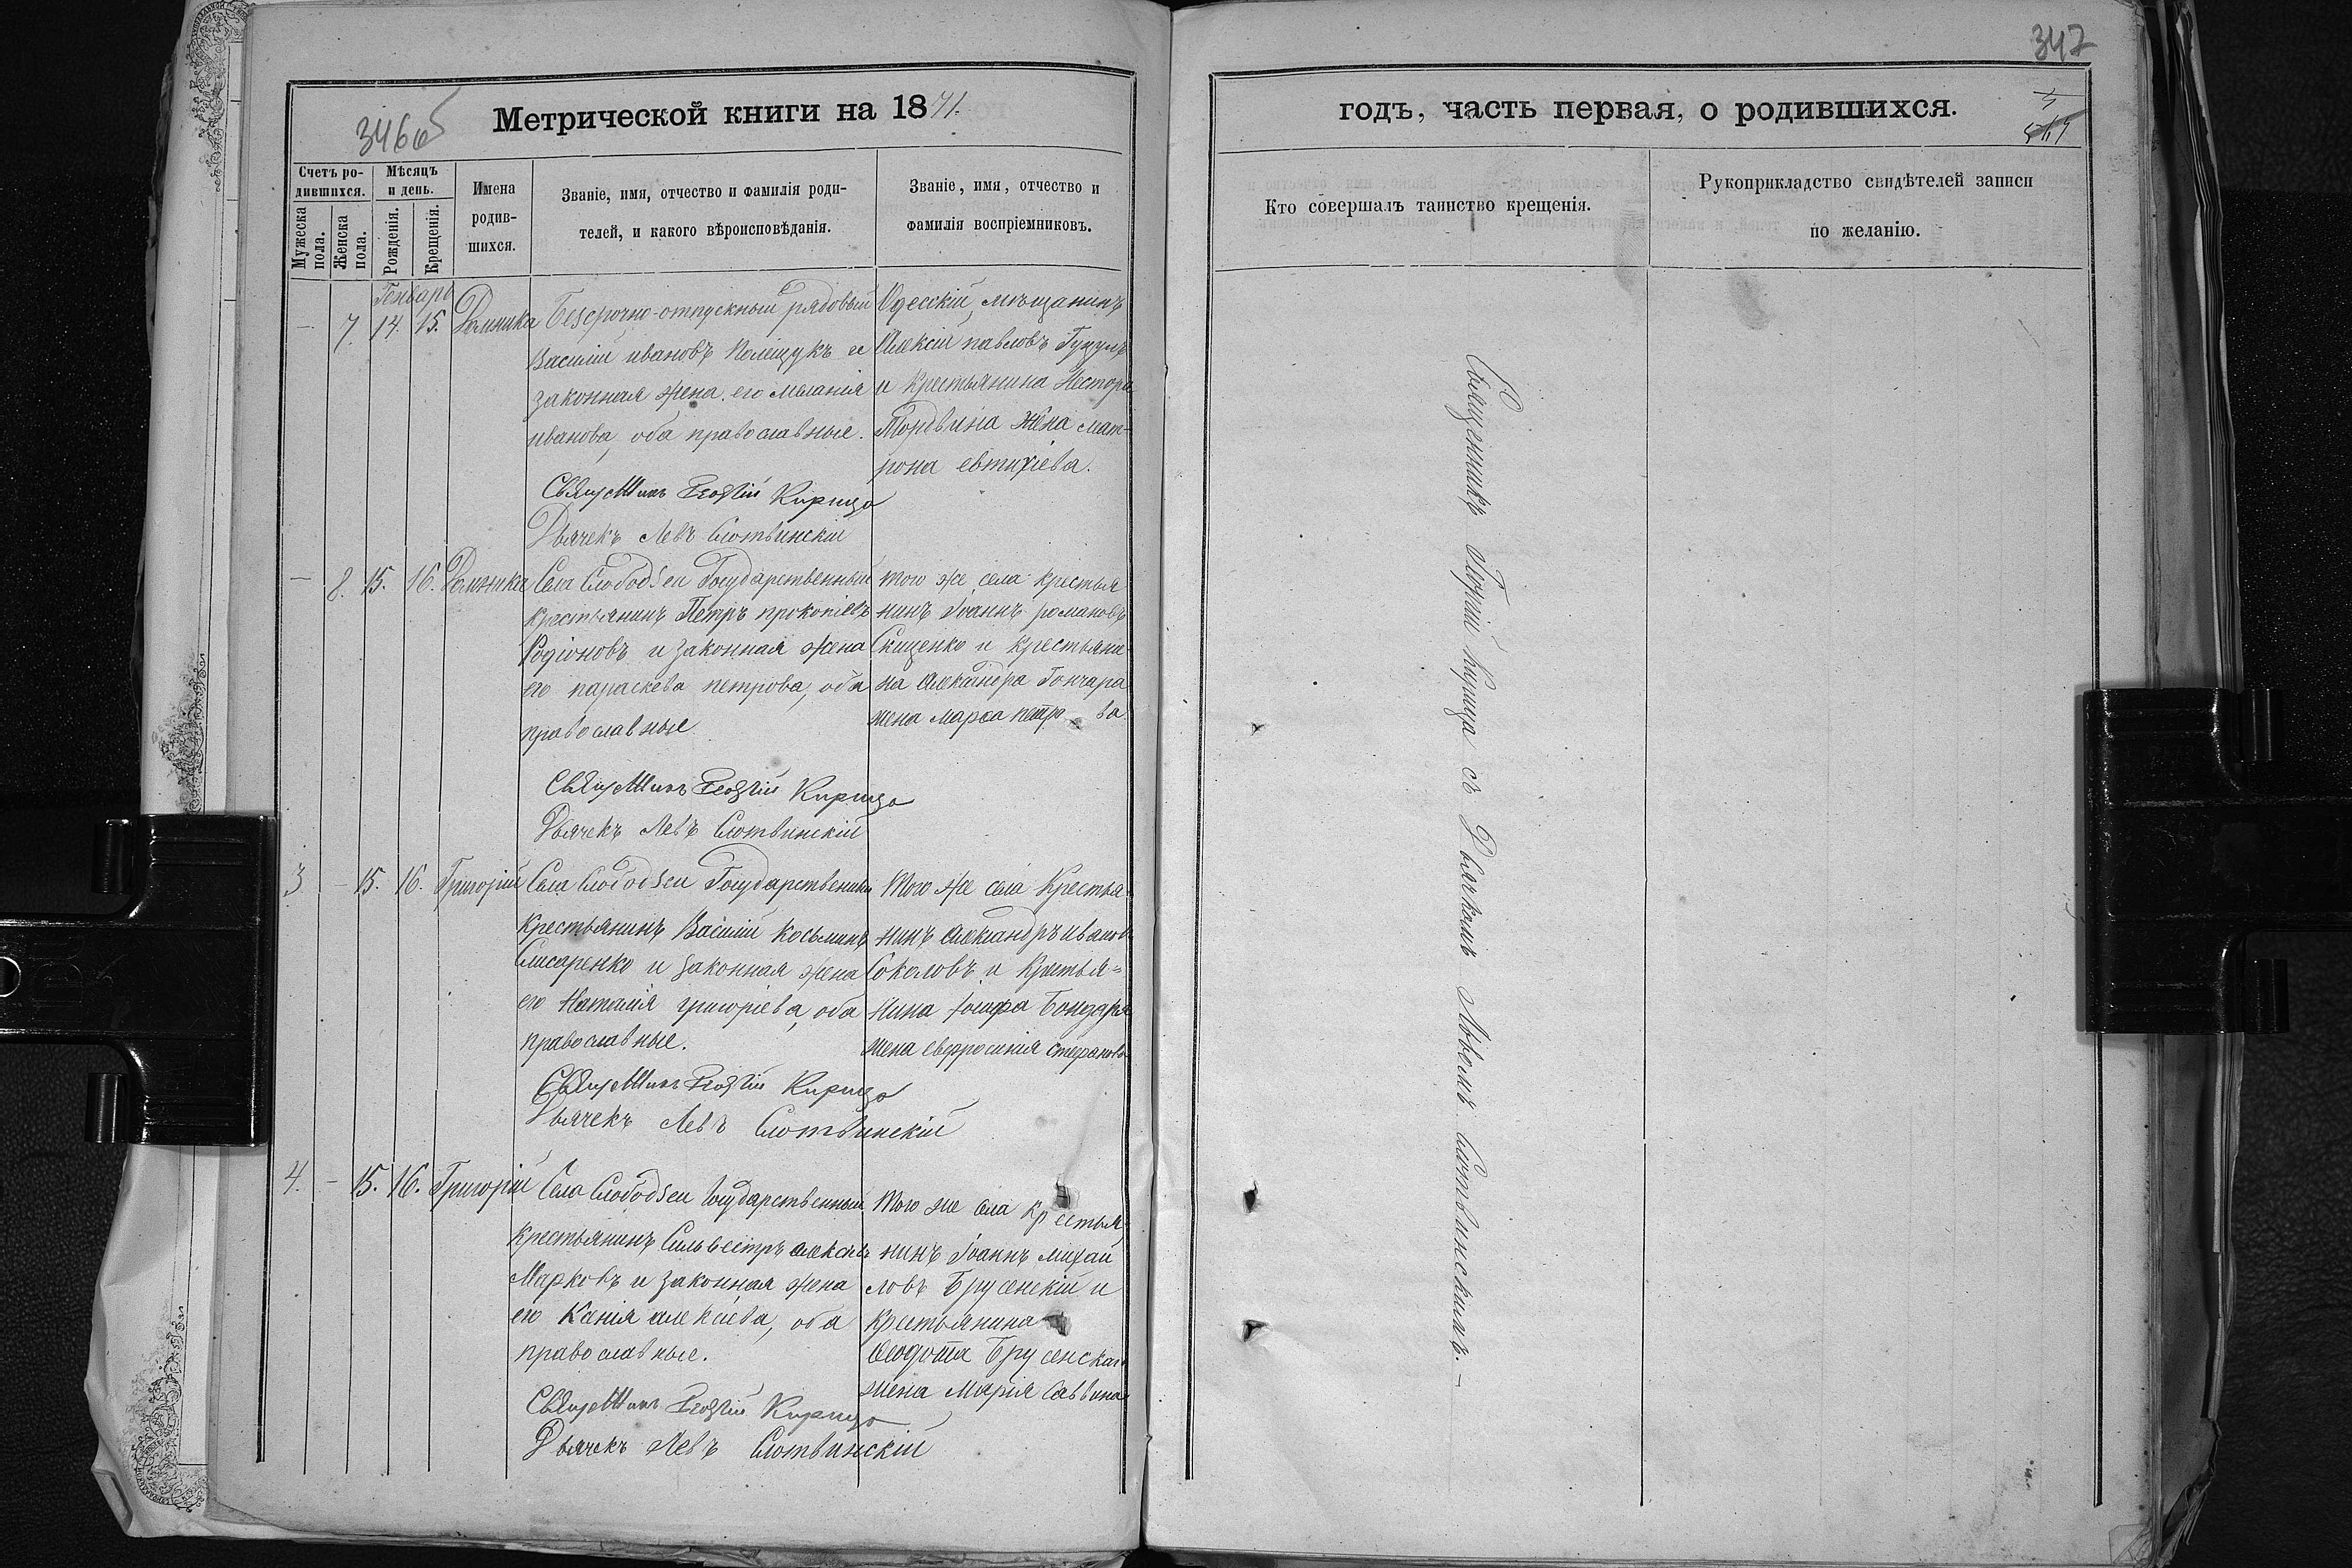 346об
Метрической книги на 1871.
Счетъ ро-
дившихся.
Мѣсяцъ
и день.
Мужеска
пола.
Женска
пола.
Рожденія.
Крещенія.
Имена
родив-
шихся.
Званіе, имя, отчество и фамилія роди-
телей, и какого вѣроисповѣданія.
Званіе, имя, отчество и
фамилія воспріемниковъ.
Генварь
— 7. 14. 15. Домника
Безсрочно-отпускный рядовый
Василій ивановъ Полещукъ и
законная жена его меланія
иванова, оба православные.
Одесскій мѣщанинъ
Алексій павловъ Гуцулъ
и крестьянина Нестора
Мордвина жена мат-
рона евтихіева.
Священникъ Георгій Кирица
Дьячекъ Левъ Слотвинскій
— 8. 15. 16. Домника
Села Слободзеи Государственный
крестьянинъ Петръ прокопіевъ
Родіоновъ и законная жена
его параскева петрова, оба
православные
того же села крестья
нинъ Іоаннъ романовъ
Скиценко и крестьяни
на Александра Гончара
жена марѳа петрова
Священникъ Георгій Кирица
Дьячекъ Левъ Слотвинскій
3 — 15. 16. Григорій
Села Слободзеи Государственный
крестьянинъ Василій косьминъ
Слисаренко и законная жена
его Наталія григоріева, оба
православные.
Того же села Крестья-
нинъ Александръ ивановъ
Соколовъ и крестья=
нина Іосифа Бондаря
жена евфросинія стефанова
Священникъ Георгій Кирица
Дьячекъ Левъ Слотвинскій
4. — 15. 16. Григорій
Села Слободзеи Государственный
крестьянинъ Сильвестръ алексіевъ
Марковъ и законная жена
его Ксенія алексіева, оба
православные.
Того же села крестья-
нинъ Іоаннъ михай
ловъ Брусенскій и
крестьянина
Ѳеодота Брусенскаго
жена Марія Саввина
Священникъ Георгій Кирица
Дьячекъ Левъ Слотвинскій
347
годъ, часть первая, о родившихся.
Кто совершалъ таинство крещенія.
Рукоприкладство свидѣтелей записи
по желанію.
Священникъ Георгій Кирица съ Дьячкомъ Львомъ Слотвинскимъ. —